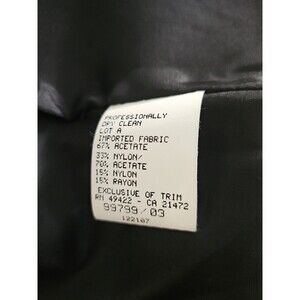 PROFESSIONALLY
DRY CLEAN
LOT A
IMPORTED FABRIC
67% ACETATE
33% NYLON/
70% ACETATE
15% NYLON
15% RAYON
EXCLUSIVE OF TRIM
RN 49422 - CA 21472
99799/03
122107